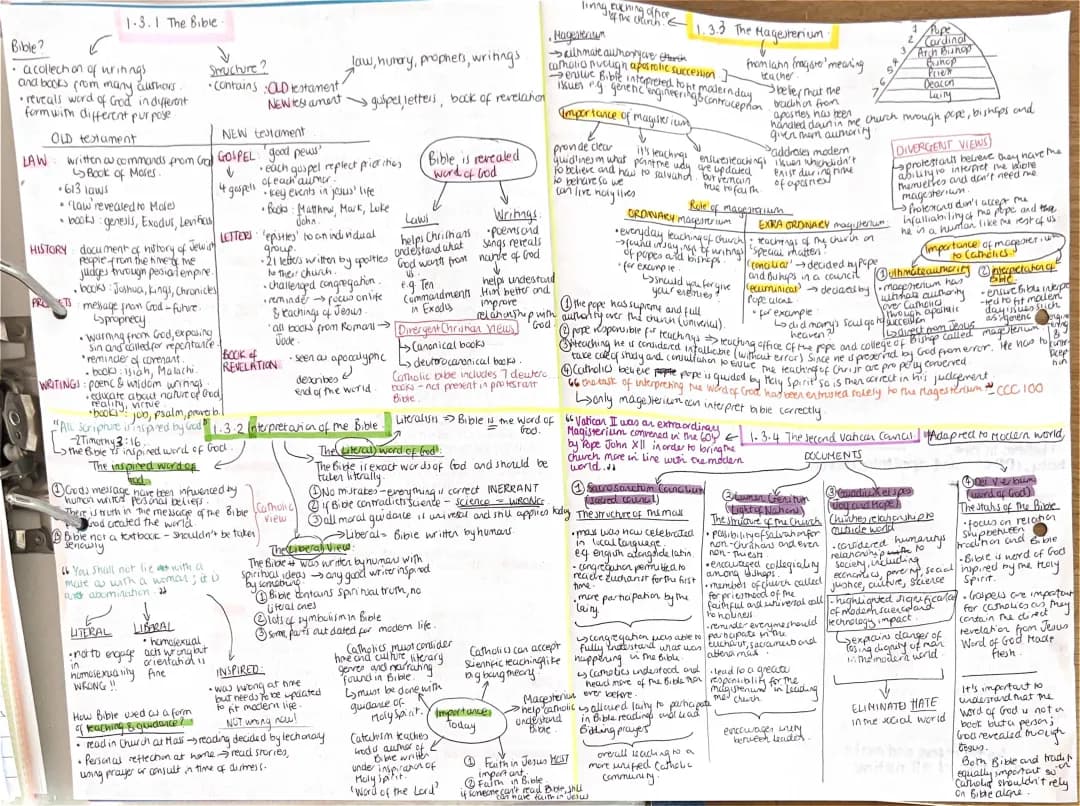 1.3.1 The Bible.
Bible?
• a collection of writings
and books from many authors.
• reveals word of God in different
form with different purpose
Structure?
• contains : OLD testament
NEW testament
law, history, prophets, writings
gospel, letters, book of revelation
OLD testament
LAW:
written as commands from God
↳ Book of Moses.
• 613 laws
• 'Law' revealed to Moses
• books : genesis, Exodus, Leviticus
HISTORY:
document of history of Jewish
people from the time of the
judges through persian empire.
• books : Joshua, Kings, Chronicles
PROPHETS
message from God - future.
↳ prophecy
• warning from God, exposing
sin and called for repentance
• reminder of covenant.
• books : Isiah, Malachi.
WRITINGS:
poetic & wisdom writings
• educate about nature of God,
reality, virtue
• books : job, psalm, proverb
NEW testament.
GOSPEL:
'good news'
4 gospels
• each gospel reflect priorities
of each author.
• key events in Jesus' life
• Books : Matthew, Mark, Luke
John.
LETTERS:
'epistles' to an individual
group.
• 21 letters written by apostles
to their church.
• challenged congregation.
• reminder → focus on life
& teachings of Jesus.
• all books from Romans →
Jude.
BOOK of
REVELATION
• seen as apocalyptic
describes
end of the world.
Bible is revealed
word of God
Laws
helps Christians
understand what
God wants from
us.
e.g. Ten
Commandments
in Exodus
Writings.
• poems and
songs reveals
nature of God
helps understand
Him better and
improve
relationship with
God.
Divergent Christian Views
↳ Canonical books
↳ deuterocanonical books.
Catholic bible includes 7 deutero
books - not present in protestant
Bible.
living teaching office
of the church.
1.3.3 The Magesterium
• Magesterium
→ ultimate authority over church
catholic through apostolic succession
→ ensure Bible interpreted to modern day
issues e.g. genetic engineering & contraception
from latin 'magister' meaning
teacher.
→ belief that the
tradition from
apostles has been
handed down in the church through pope, bishops and
given them authority
1 Pope
2 Cardinal
3 Arch Bishop
4 Bishop
5 Priest
6 Deacon
7 Laity
Importance of magisterium
provide clear
guidelines in what
to believe and how
to behave so we
can live holy lives
it's teachings
point the way
to salvation.
ensure teachings
are updated
but remain
true to faith.
addresses modern
issues which didn't
exist during time
of apostles
DIVERGENT VIEWS
↳ protestants believe they have the
ability to interpret the bible
themselves and don't need the
magesterium.
↳ Protestants don't accept the
infallibility of the pope and the
he is a human like the rest of us.
Role of magesterium
ORDINARY magesterium
• everyday teaching of Church
• found in sayings of writings
of popes and bishops.
• for example.
↳ should you forgive
your enemies?
EXTRA ORDINARY magisterium:
• teachings of the church on
special matters.
'conciliar' → decided by Pope
and Bishops in a council
'ecumenical' → decided by
Pope alone.
• for example:
↳ did mary's soul go to
heaven?
Importance of magesterium
to Catholics.
① Ultimate authority
• magesterium has
ultimate authority
over Catholics
through apostolic
succession
↳ direct from Jesus
② Interpretation of
Bible.
• ensure Bible interpre
ted to fit modern
day issues such
as genetic
① The pope has supreme and full
authority over the church (universal).
② pope responsible for teachings → teaching office of the pope and college of Bishop called magisterium
③ teaching he is considered infallible (without error) since he is preserved by God from error. He has to
take care of study and consultation to ensure the teaching of Christ are properly conveyed
④ Catholics believe pope is guided by Holy Spirit so is then correct in his judgement.
"the task of interpreting the Word of God has been entrusted solely to the Magesterium" - CCC 100
↳ only magesterium can interpret bible correctly.
1.3.2 Interpretation of the Bible
"All scripture is inspired by God"
- 2 Timothy 3:16.
↳ the Bible is inspired word of God.
The inspired word of
God.
① God's message have been influenced by
human writers personal beliefs.
There is truth in the message of the Bible
God created the world.
③ Bible not a textbook - shouldn't be taken
seriously
Catholic
View
Literalism ⇒ Bible is the Word of
God.
The Literal word of God.
The Bible is exact words of God and should be
taken literally.
① No mistakes - everything is correct INERRANT
② if Bible contradicts science - science = WRONG.
③ all moral guidance is universal and still applies today
↳ Liberal = Bible written by humans.
The Liberal View
The Bible was written by humans with
spiritual ideas → any good writer inspired
by something.
① Bible contains spiritual truth, no
literal ones
② lots of symbolism in Bible
③ some parts outdated for modern life.
"You shall not lie with a
male as with a woman; it is
an abomination."
LITERAL
• not to engage
in
homosexuality
WRONG !!
LIBERAL
• homosexual
acts wrong but
orientation is
fine
INSPIRED:
• was wrong at time
but needs to be updated
to fit modern life.
NOT wrong now!
How Bible used as a form
of teaching & guidance?
• read in Church at Mass → reading decided by lectionary
• Personal reflection at home → read stories,
using prayer or consult in time of distress.
Catholics must consider
time and culture, literary
genre and narrating
found in Bible.
↳ must be done with
guidance of
Holy Spirit.
Catholics can accept
scientific teaching like
big bang theory
Importance
Today
Magesterium
help catholic
understand
Bible.
Catechism teaches
God is author of
Bible written
under inspiration of
Holy Spirit.
'Word of the Lord'
① Faith in Jesus MOST
important.
② Faith in Bible
if someone can't read Bible, still
can have faith in Jesus
"Vatican II was an extraordinary
Magisterium convened in the 60s
by Pope John XII in order to bring the
church more in line with the modern
world."
1.3.4 The second Vatican Council
Adapted to Modern world
DOCUMENTS
① Sacrosanctum Concilium
(sacred council)
The structure of the mass
• mass was now celebrated
in local language.
e.g English alongside latin.
• congregation permitted to
receive Eucharist for the first
time.
• more participation by the
laity.
↳ congregation was able to
fully understand what was
happening in the Bible.
↳ Catholics understood and
head more of the Bible than
ever before.
↳ allowed laity to participate
in Bible readings and lead
Bidding prayers
overall leading to a
more unified Catholic
community.
② Lumen Gentium
(Light of Nations)
The structure of the Church
• possibility of salvation for
non-christians and even
non-theists
• encouraged collegiality
among bishops.
• members of church called
for priesthood of the
faithful and universal call
to holiness
• reminder everyone should
participate in the
eucharist, sacraments and
attend mass.
• lead to a greater
responsibility for the
magisterium in leading
the church.
encourages unity
between leaders.
③ Gaudium et spes
(Joy and Hope)
Churches relationship to
outside world
• considered humanitys
relationship to
society, including
economics, poverty, social
justice, culture, science
- highlighted significance
of modern science and
technology impact.
↳ explains danger of
losing dignity of man
in the modern world.
ELIMINATED HATE
in the social world
④ Dei Verbum
(word of God)
The status of the Bible
• focus on relation
ship between
tradition and Bible
• Bible is word of God
inspired by the Holy
Spirit.
• Gospels are important
for catholics as they
contain the direct
revelation from Jesus
Word of God Made
flesh.
It's important to
understand that the
Word of God is not a
book but a person;
God revealed through
Jesus.
Both Bible and tradition
equally important so
Catholic shouldn't rely
on Bible alone.